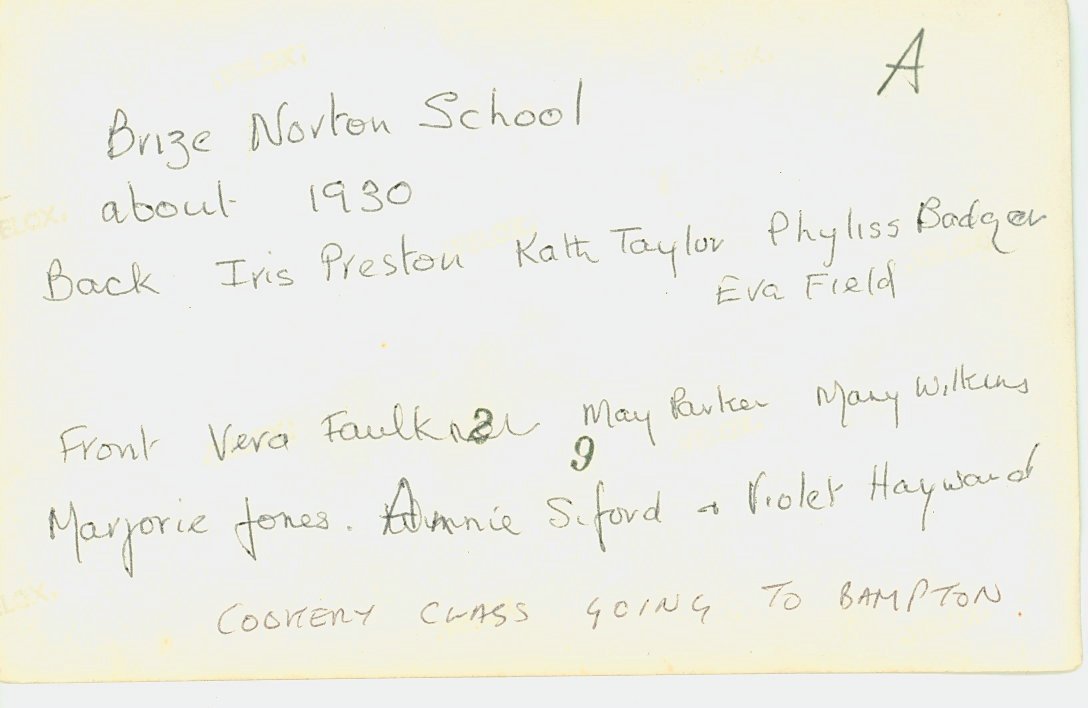 A
Brize Norton School
about 1930
Back Iris Preston Kath Taylor Phyliss Badger
Eva Field
Front Vera Faulkner May Parker Mary Wilkins
3
9
Marjorie Jones. Annie Siford + Violet Hayward
COOKERY CLASS GOING TO BAMPTON.